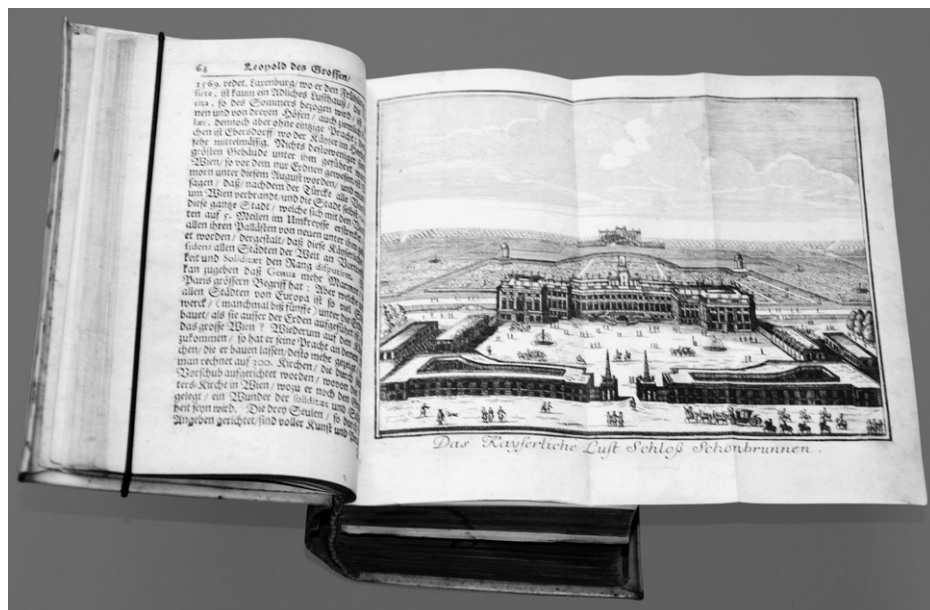 64 Leopold des Grossen/
1569. redet. Laxenburg/ wo er den
siret, ist kaum ein Adliches Lusthauß/
so des Sommers bezogen wird/
nen und von dreyen Höfen/ auch
dennoch aber ohne eintzige Pracht.
chen ist Ebersdorff/ wo der Käyser im
sehr mittelmäßig. Nichts destoweniger
grösten Gebäude unter ihm geführet
Wien/ so vor dem nur Erdnen gewesen/
morn unter diesem August worden/ und
sagen/ daß/ nachdem der Türcke alle
um Wien verbrandt/ und die Stadt selbst
diese gantze Stadt/ welche sich mit den
ten auf 5. Meilen im Umkreysse erstrecket
allen ihren Pallästen von neuen unter ihm
et worden/ dergestalt/ daß diese Käyserliche
sidenz allen Städten der Welt an
keit und Solidität den Rang disputiren
kan zugeben daß Genua mehr Marmor
Paris grössern Begriff hat: Aber welche
allen Städten von Europa ist so viel
werck/ (manchmal biß fünffe) unter die
bauet/ als sie ausser der Erden aufgeführet
das grosse Wien? Wiederum auf den
zukommen/ so hat er seine Pracht an denen
chen/ die er bauen lassen/ desto mehr gezeiget
man rechnet auf 300. Kirchen/ die durch
Vorschub aufgerichtet worden/ wovon
ters-Kirche in Wien/ wozu er noch den
gelegt/ ein Wunder der solidität und
heit seyn wird. Die drey Seulen/ so durch
Angeben gerichtet/ sind voller Kunst und
Das Kayserliche Lust Schloß Schönbrunnen.